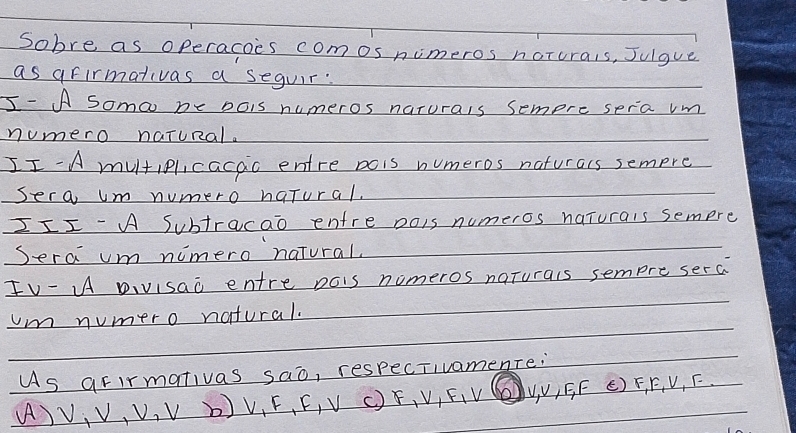 Sobre as operações com os números naturais, Julgue
as afirmativas a seguir:
I - A Soma de dois numeros naturais Sempre sería um
numero natural.
II - A multiplicação entre dois numeros naturais sempre
Sera um numero natural.
III - A Subtração entre dois numeros naturais Sempre
Será um número natural.
IV - A Divisão entre dois números naturais sempre será
um numero natural.
As afirmativas são, respectivamente:
A) V, V, V, V b) V, F, F, V c) F, V, F, V D) V, V, F, F E) F, F, V, F.